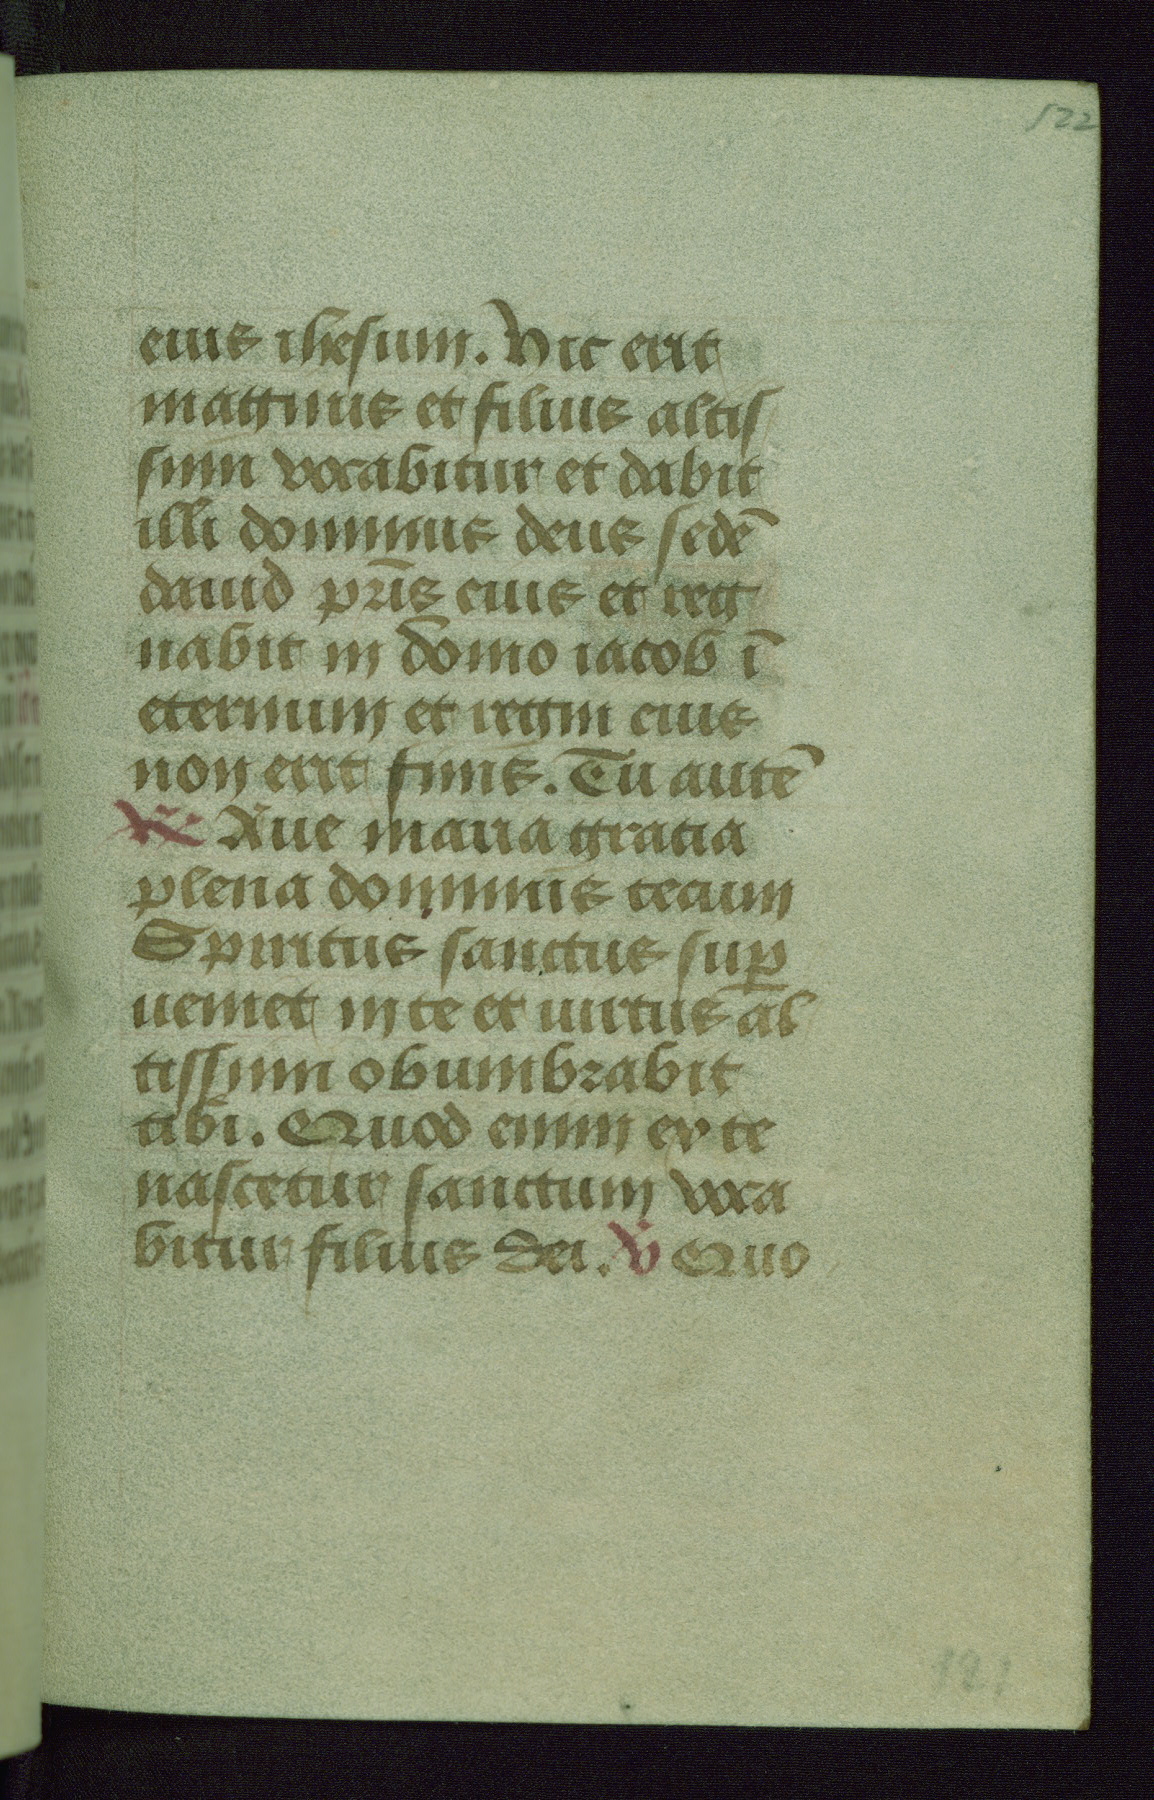 522
eius ihesum. Hic erit
magnus et filius altis
simi vocabitur et dabit
illi dominus deus sedē
dauid pr̄is eius et reg
nabit in domo iacob ī
eternum et regni eius
non erit finis. Tu autē
Aue maria gracia
plena dominus tecum
Spiritus sanctus sup̱
ueniet in te et uirtus al
tissimi obumbrabit
tibi. Quod enim ex te
nascetur sanctum voca
bitur filius dei. V̇ Quo
121